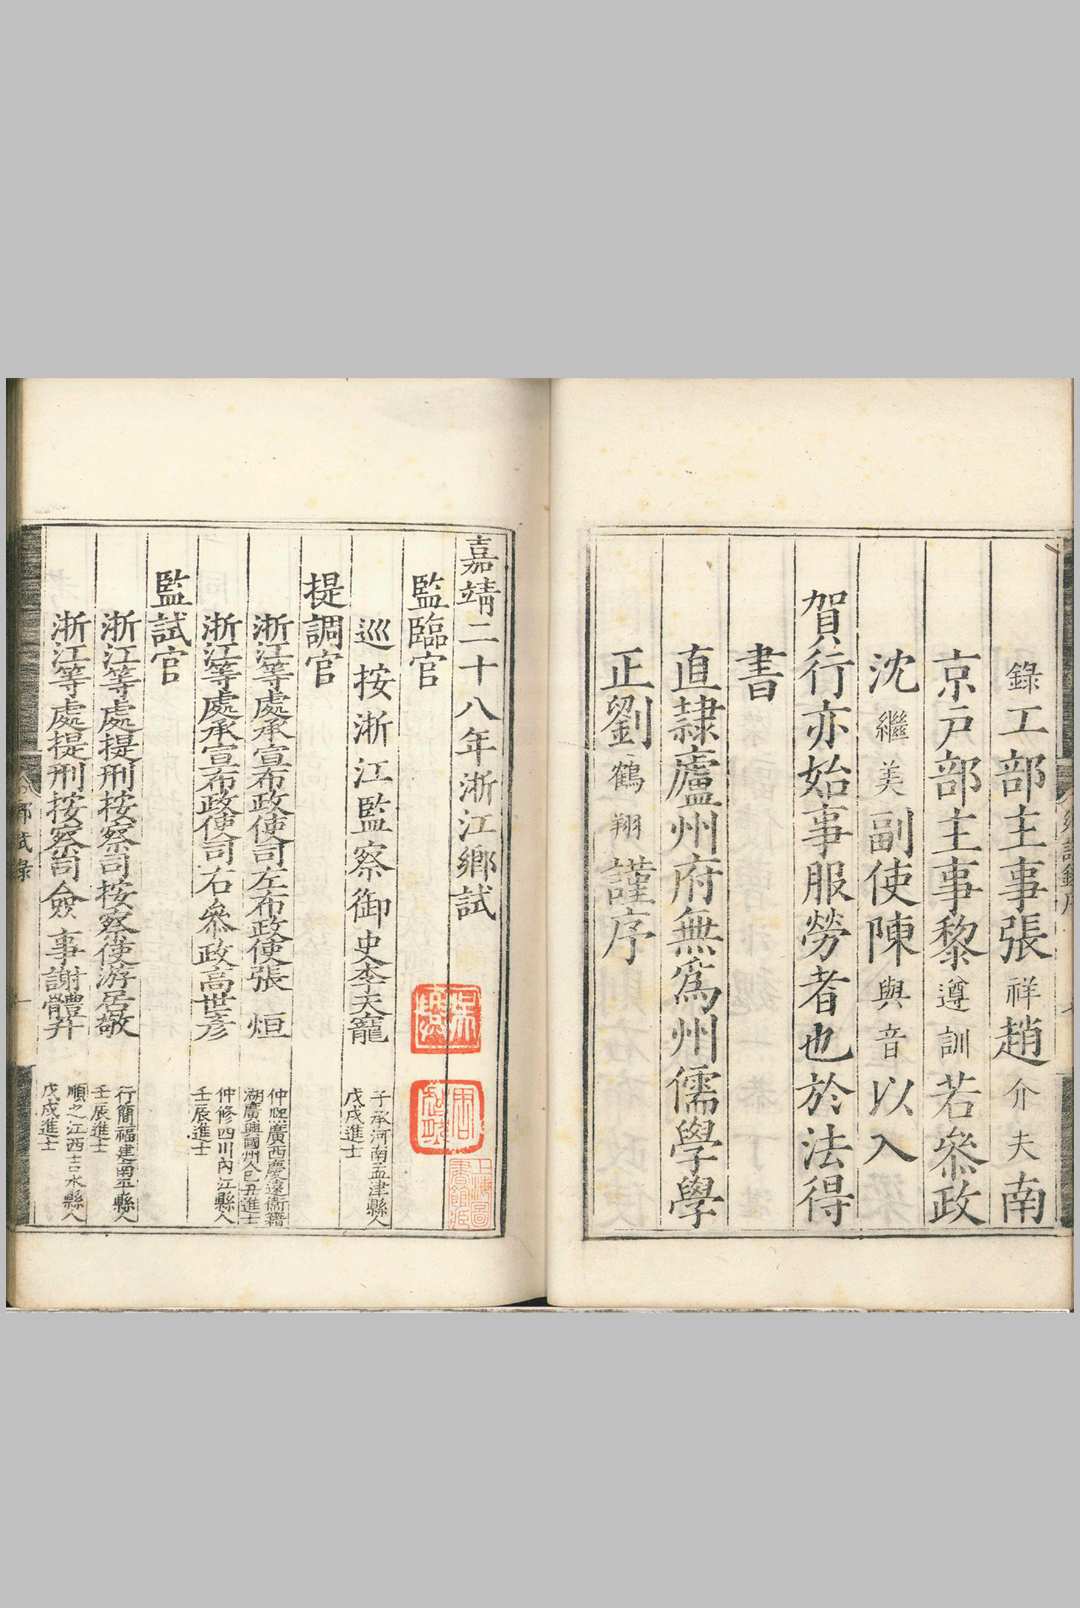 錄工部主事張祥趙介夫南
京戶部主事黎遵訓若參政
沈繼美副使陳與音以入
賀行亦始事服勞者也於法得
書
直隸廬州府無為州儒學學
正劉鶴翔謹序
嘉靖二十八年浙江鄉試
監臨官
巡按浙江監察御史李天寵
子承河南孟津縣人
戊戌進士
提調官
浙江等處承宣布政使司左布政使張烜
仲熙廣西慶遠衛籍
湖廣興國州人己丑進士
浙江等處承宣布政使司右參政高世彥
仲修四川內江縣人
壬辰進士
監試官
浙江等處提刑按察司按察使游居敬
行簡福建南平縣人
壬辰進士
浙江等處提刑按察司僉事謝體升
順之江西吉水縣人
戊戌進士